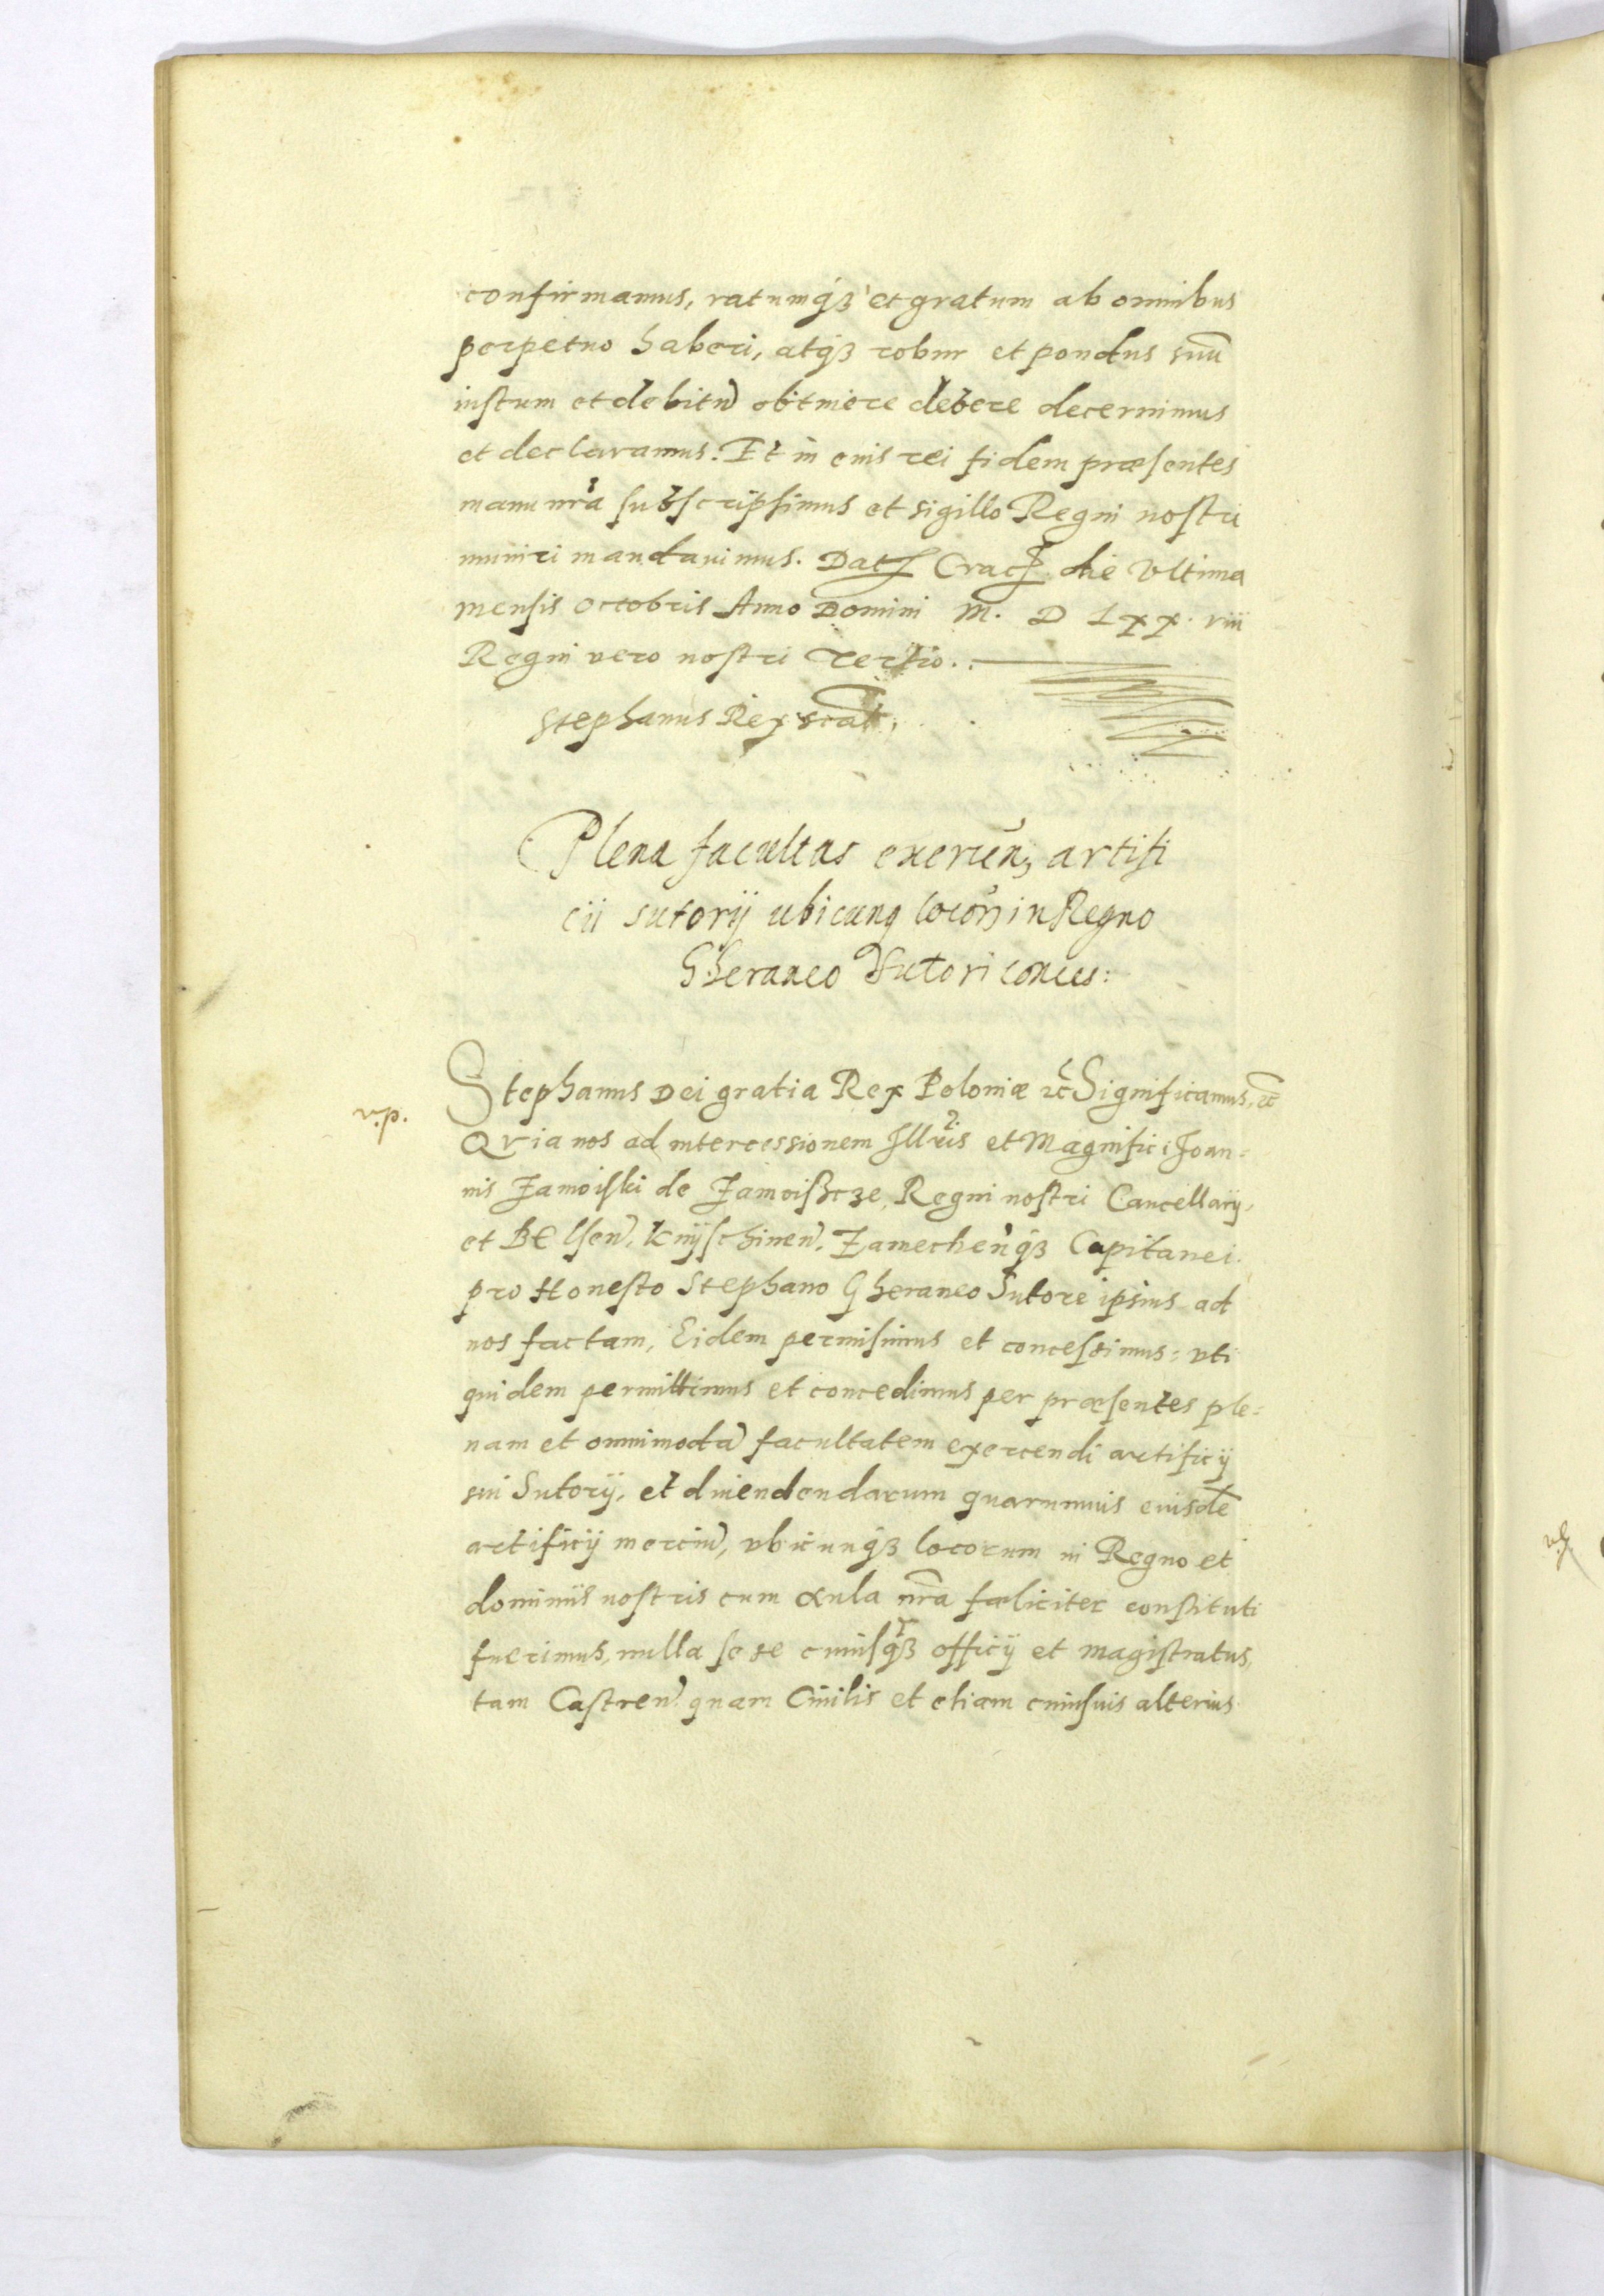 confirmamus, ratumq3 et gratum ab omnibus
perpetuo haberi, atq3 robur et pondus suū
iustum et debitū obtinere debere decernimus
et declaramus. Et in cuis rei fidem præsentes
manu nrā subscripsimus et sigillo Regni nostri
muniri mandauimus. Dat Crac die Vltima
mensis Octobris Anno Domini M. D Lxx. viii
Regni vero nostri tertio..
Stephanus Rex scat.
Plena facultas exercen, artifi
cii sutorij ubicunq locor in Regno
Gheraneo Sutori conces:
Stephanus Dei gratia Rex Poloniæ etc Significamus, etc
v.p.
Quia nos ad intercessionem Illris et Magnifici Joan=
nis Zamoiski de Zamoißcze, Regni nostri Cancellarij,
et Belsen̄, Knÿschinen̄, Zamechen̄q3 Capitanei.
pro Honesto Stephano Gheraneo Sutore ipsius ad
nos factam, Eidem permisimus et concessimus: vti
quidem permittimus et concedimus per præsentes ple=
nam et omnimodā facultatem exercendi artificij
sui Sutorij, et diuendendarum quarumuis eiusdē
artificij merciū, vbicunq3 locorum in Regno et
dominiis nostris cum aula nrā fœliciter constituti
fuerimus, nulla se se cuiusq3 officij et magistratus,
tam Castren̄ quam Ciuilis et etiam cuiusuis alterius